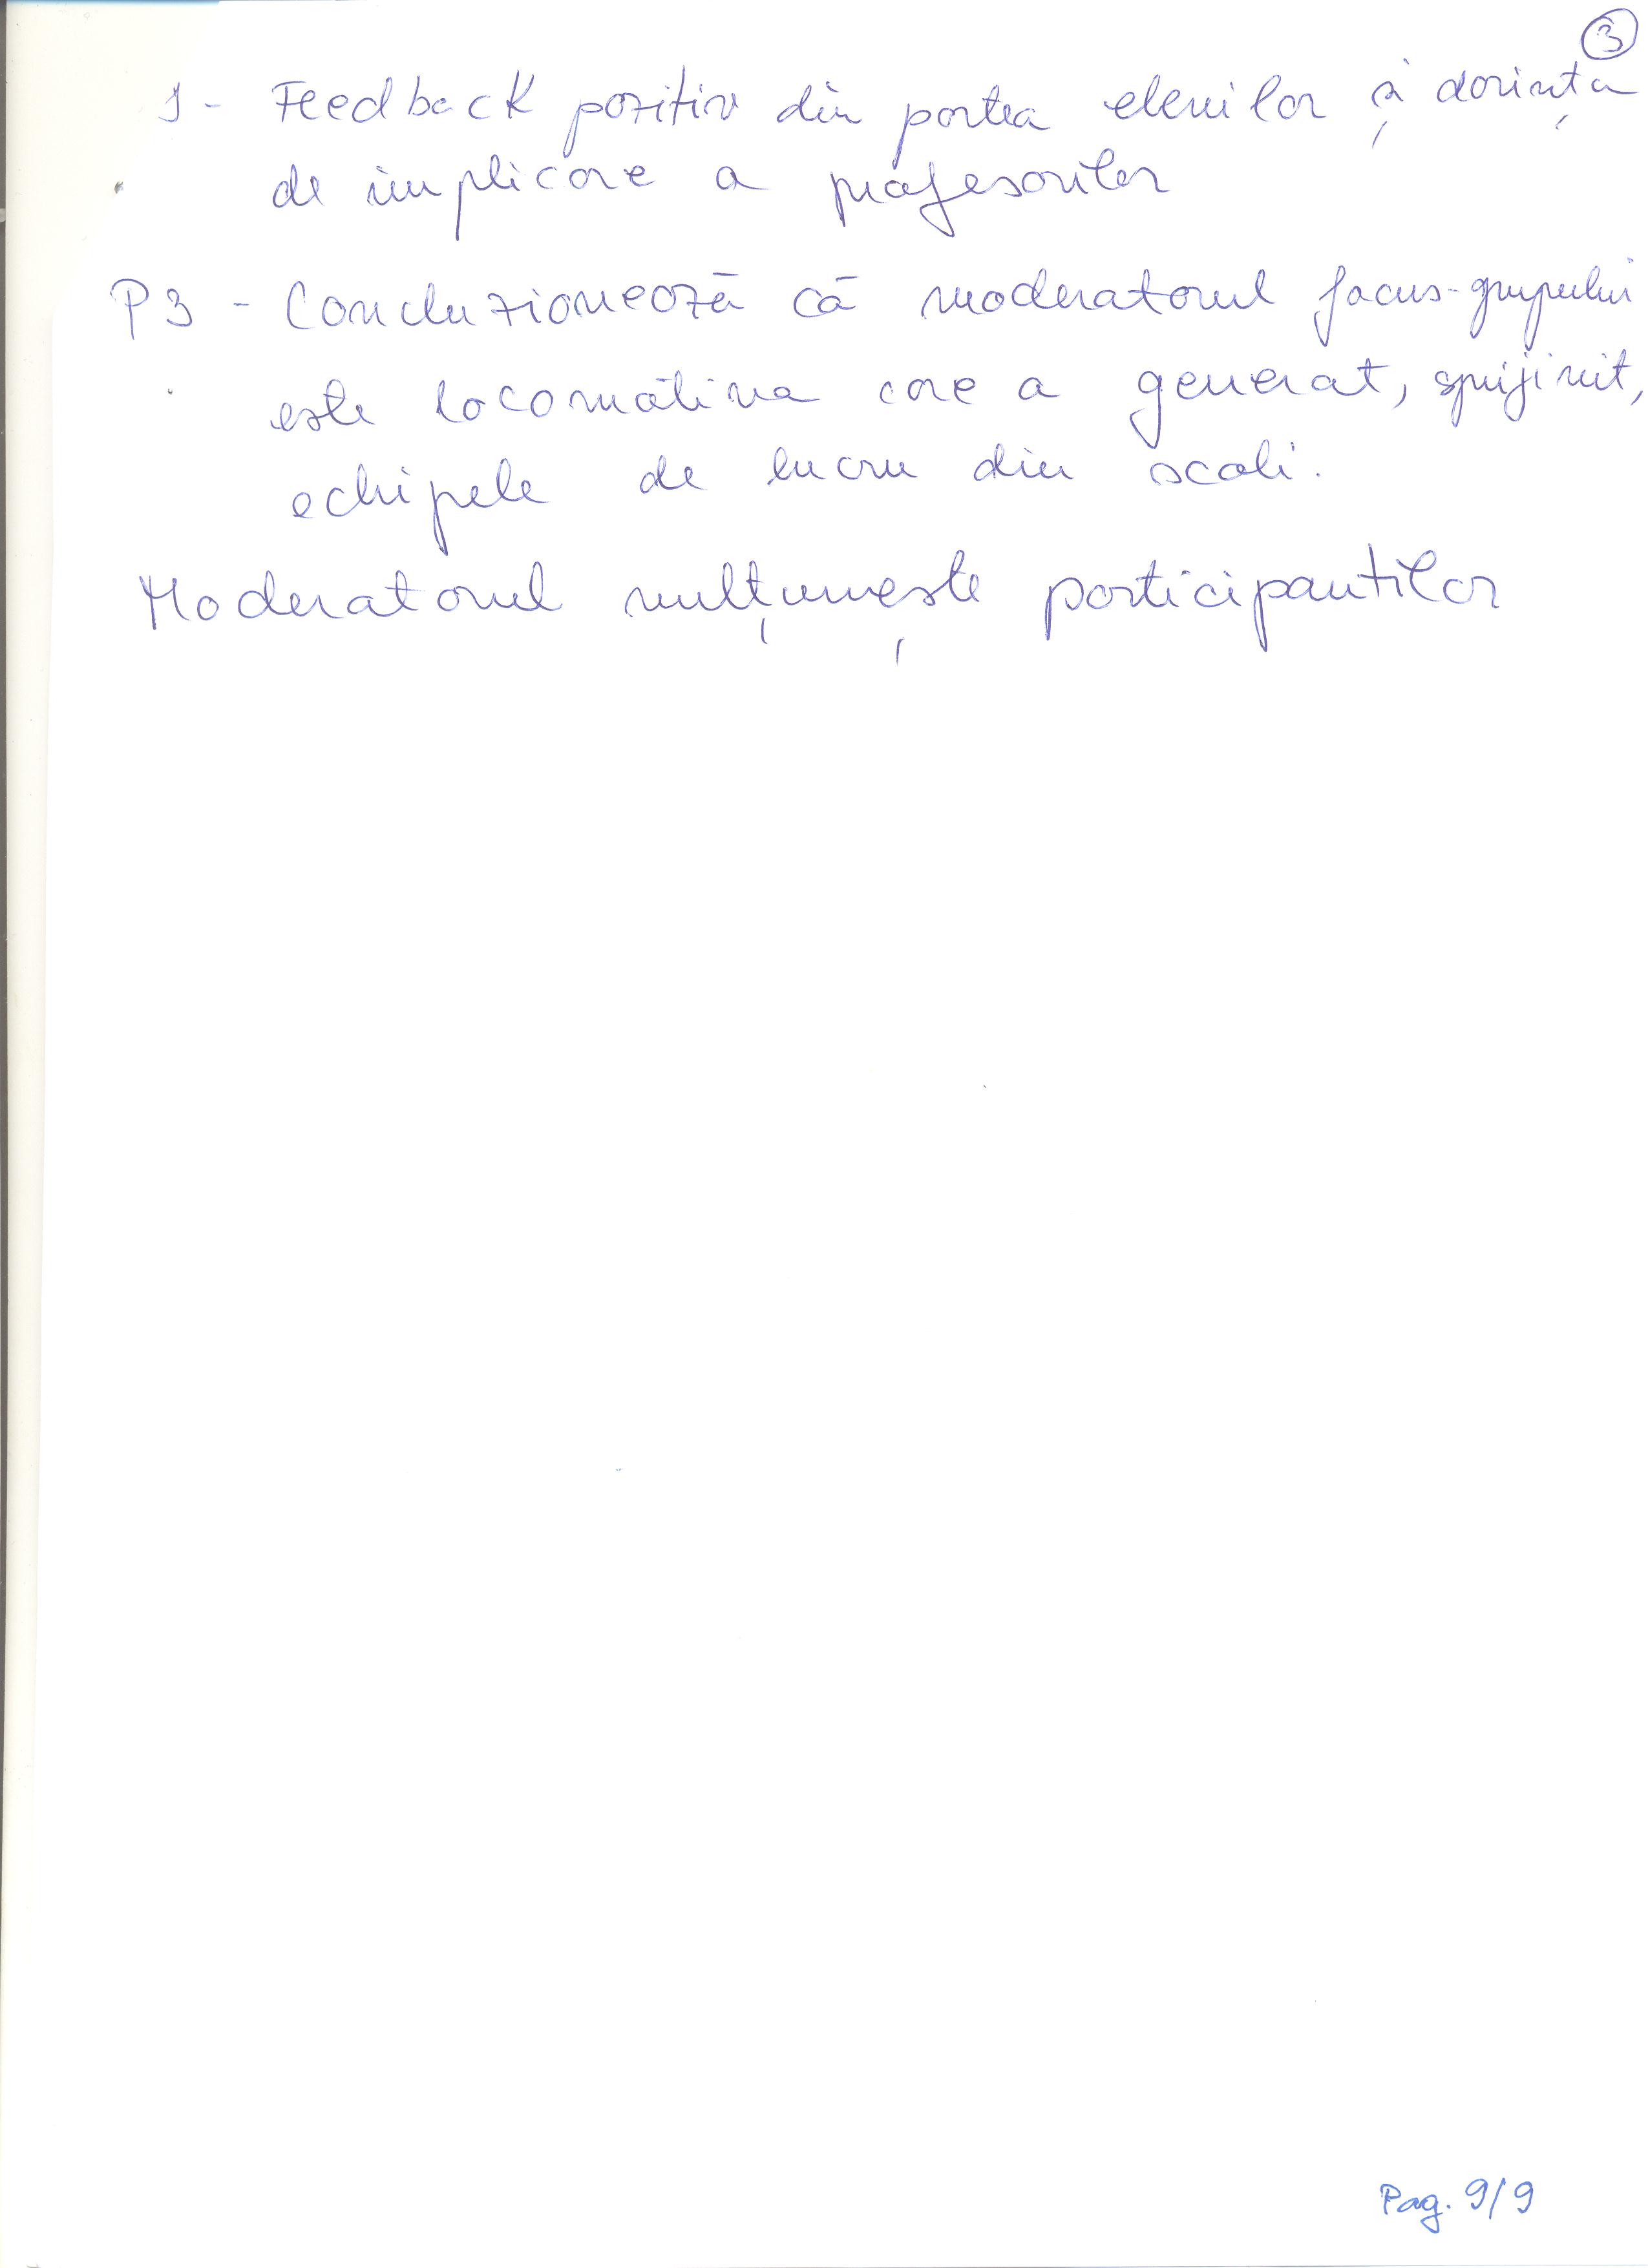 3
1 - Feedback pozitiv din partea elevilor și dorința
de implicare a profesorilor
P3 - Concluzionează că moderatorul focus-grupului
este locomotiva care a generat, sprijinit,
echipele de lucru din scoli.
Moderatorul mulțumește participantilor
Pag. 9/9